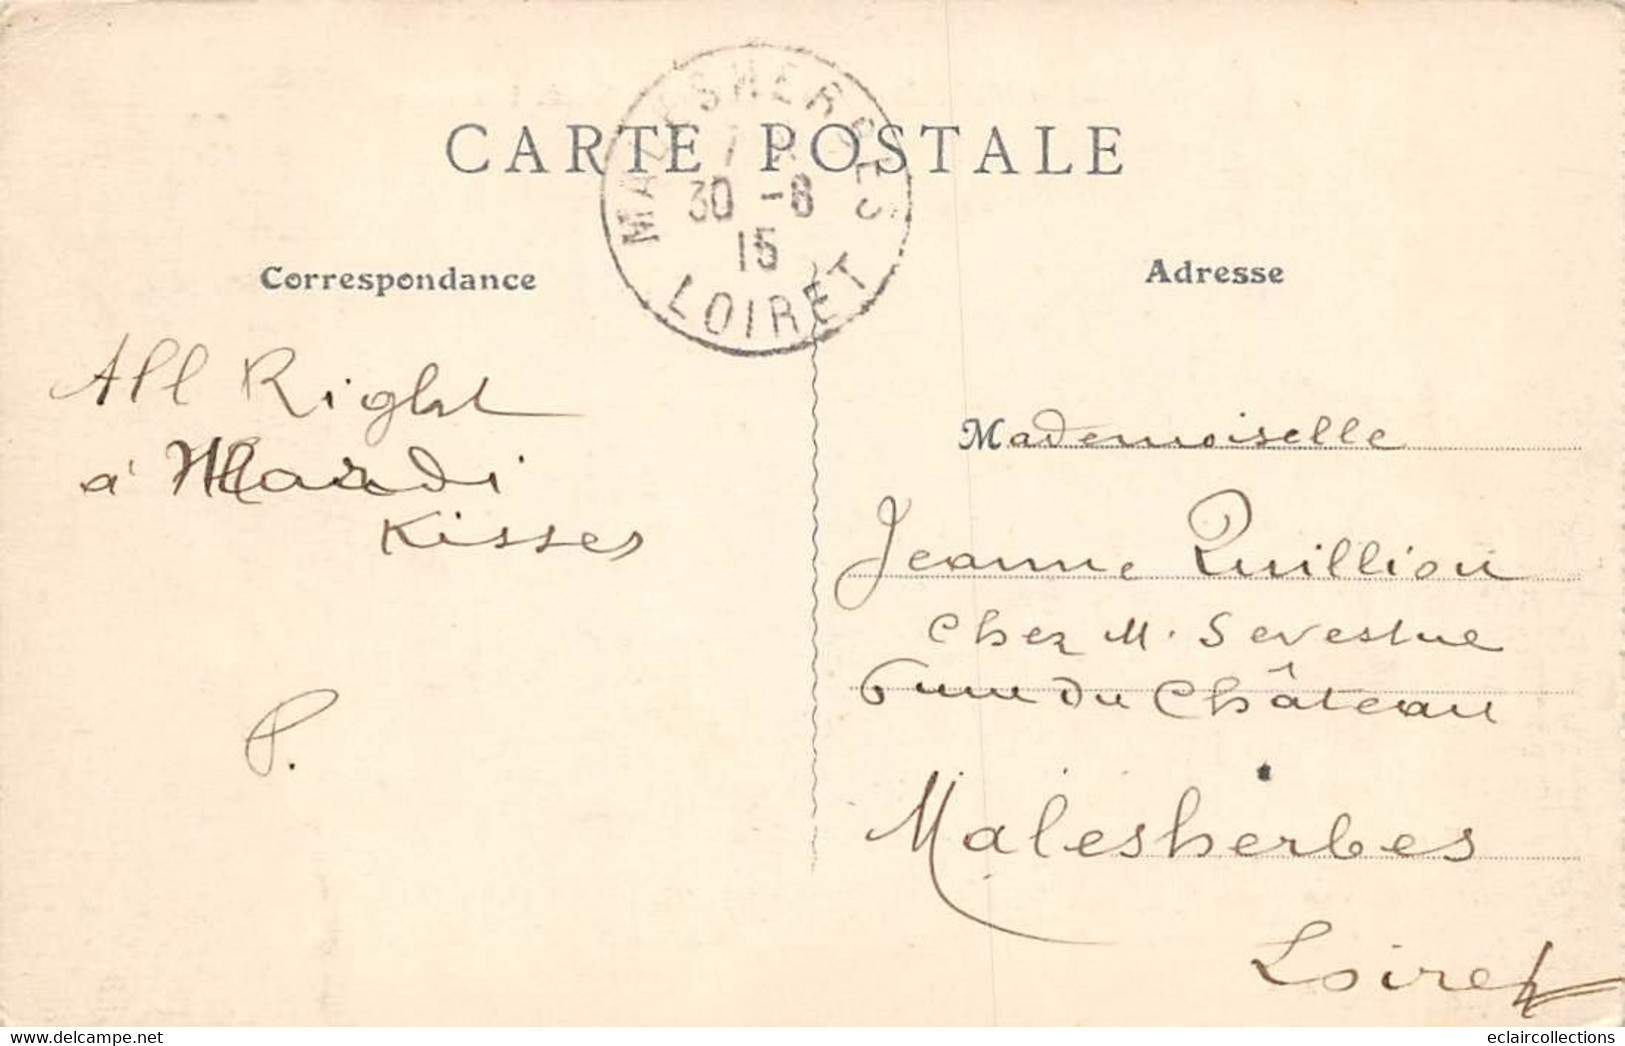 CARTE POSTALE
MALESHERBES
30 -8
15
LOIRET
Correspondance
Adresse
All Right
à Mardi
Kisses
P.
Mademoiselle
Jeanne Quillion
Chez M. Sevestre
rue du Château
Malesherbes
Loiret
eclaircollections